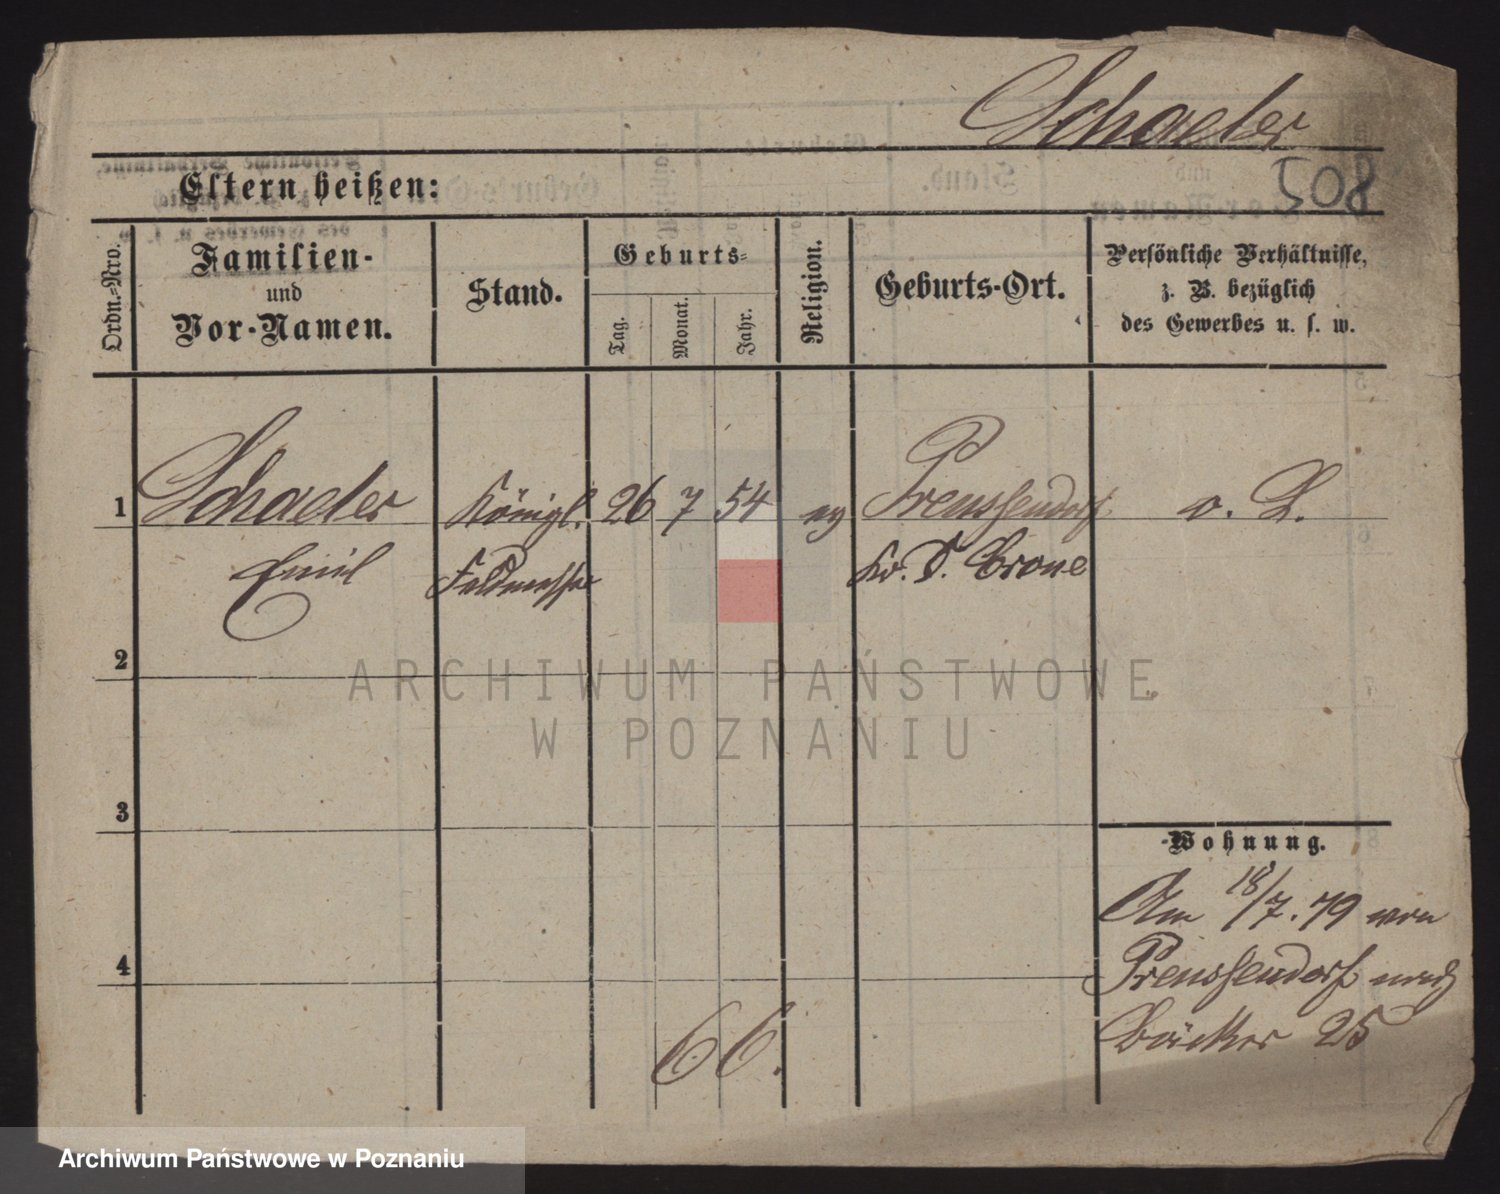 Schaeler
Eltern heißen:
508
Ordn.-Nro.
Familien-
und
Vor-Namen.
Stand.
Geburts-
Tag.
Monat.
Jahr.
Religion.
Geburts-Ort.
Persönliche Verhältnisse,
z. B. bezüglich
des Gewerbes u. s. w.
1 Schaeler Königl. 26 7 54 ev Preussendorf o. L.
Emil Feldmesser Kr. D. Crone
2
3
4
Wohnung.
Am 18/7.79 von
Preussendorf nach
Bäcker 25
66.
ARCHIWUM PAŃSTWOWE
W POZNANIU
Archiwum Państwowe w Poznaniu